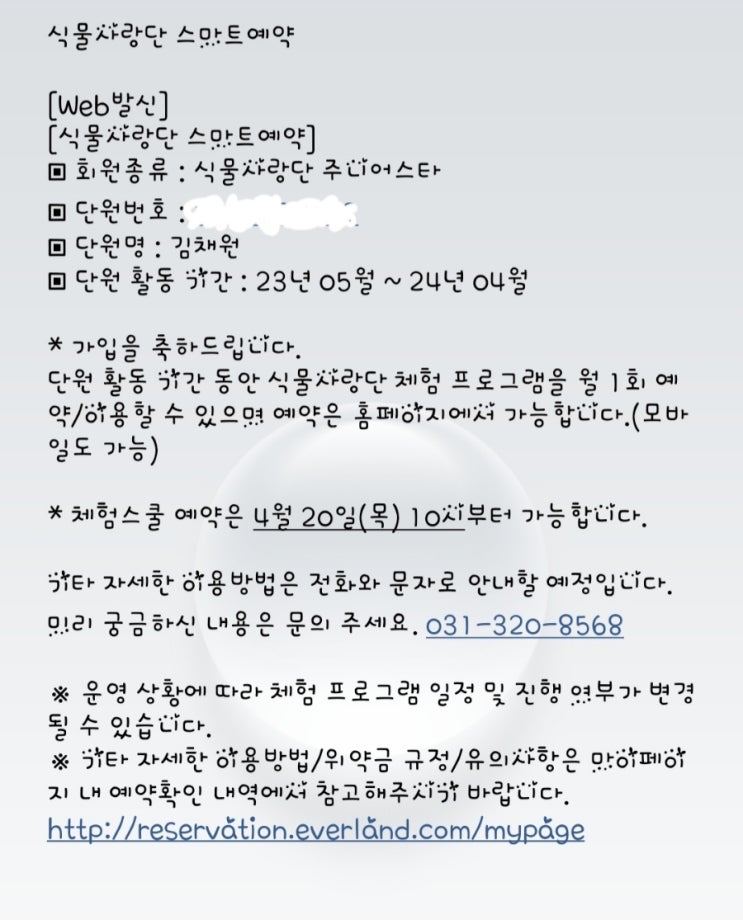 식물사랑단 스마트예약
[Web발신]
[식물사랑단 스마트예약]
▣ 회원종류 : 식물사랑단 주니어스타
▣ 단원번호 :
▣ 단원명 : 김채원
▣ 단원 활동 기간 : 23년 05월 ~ 24년 04월
* 가입을 축하드립니다.
단원 활동 기간 동안 식물사랑단 체험 프로그램을 월 1회 예
약/이용할 수 있으며 예약은 홈페이지에서 가능합니다.(모바
일도 가능)
* 체험스쿨 예약은 4월 20일(목) 10시부터 가능합니다.
기타 자세한 이용방법은 전화와 문자로 안내할 예정입니다.
미리 궁금하신 내용은 문의 주세요. 031-320-8568
※ 운영 상황에 따라 체험 프로그램 일정 및 진행 여부가 변경
될 수 있습니다.
※ 기타 자세한 이용방법/위약금 규정/유의사항은 마이페이
지 내 예약확인 내역에서 참고해주시기 바랍니다.
http://reservation.everland.com/mypage